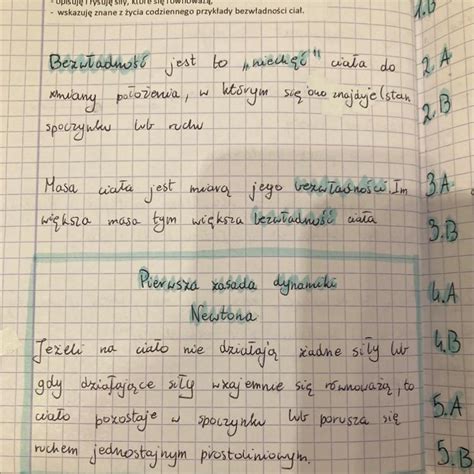 - opisuję i rysuję siły, które się równoważą,
- wskazuję znane z życia codziennego przykłady bezwładności ciał.
1.B
Bezwładność jest to „niechęć" ciała do
2.A
zmiany położenia, w którym się ono znajduje (stan
2.B
spoczynku lub ruchu
Masa ciała jest miarą jego bezwładności. Im
3.A
większa masa tym większa bezwładność ciała
3.B
Pierwsza zasada dynamiki
4.A
Newtona
4.B
Jeżeli na ciało nie działają żadne siły lub
gdy działające siły wzajemnie się równoważą, to
5.A
ciało pozostaje w spoczynku lub porusza się
ruchem jednostajnym prostoliniowym.
5.B